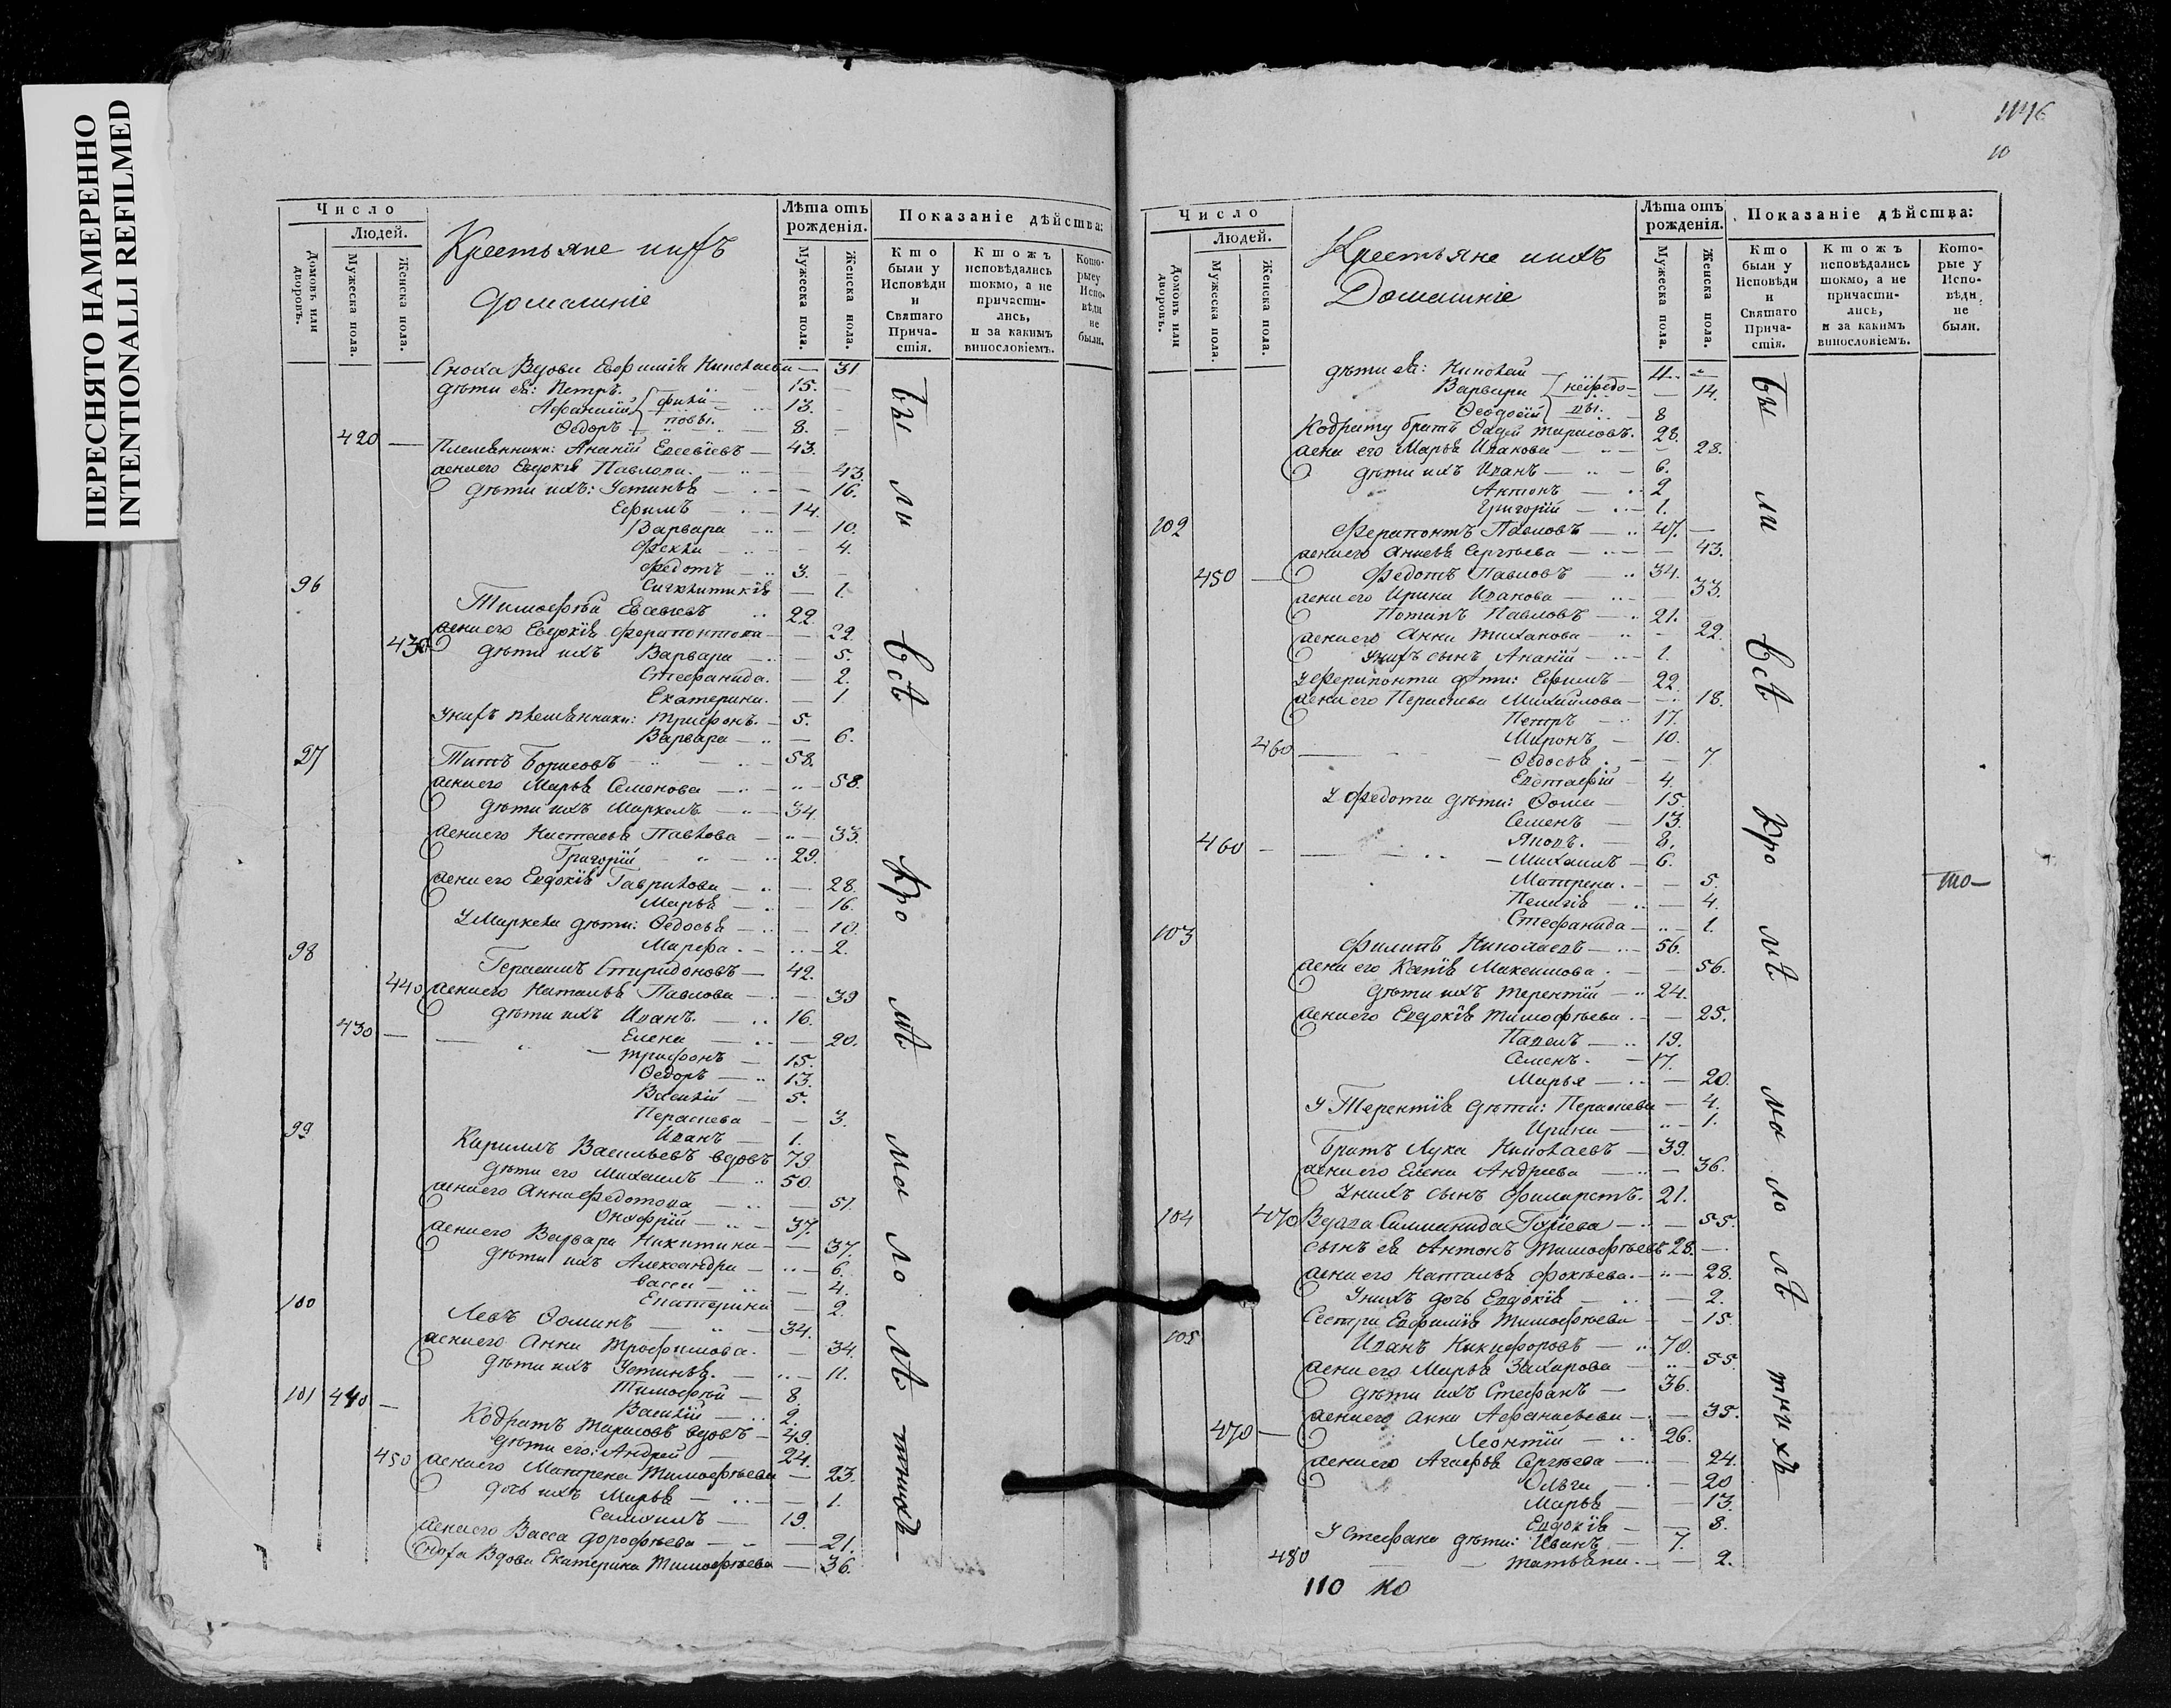 ПЕРЕСНЯТО НАМЕРЕННО
INTENTIONALLI REFILMED
Число
Людей.
Домовъ или дворовъ.
Мужеска пола.
Женска пола.
Крестьяне ихъ
домашніе
Лѣта отъ рожденія.
Мужеска пола.
Женска пола.
Показаніе дѣйства:
Кто были у Исповѣди и Святаго Причастія.
Ктожъ исповѣдались токмо, а не причастились, и за какимъ винословіемъ.
Которые у Исповѣди не были.
Сноха Вдова Евфимія Николаева — 31
дѣти ея: Петръ 15.
Афанасій 13.
Ѳедоръ 8.
420 — Племянники: Ананій Евсевіевъ — 43.
жена его Евдокія Павлова — 43.
дѣти ихъ: Устинья — 16.
Ефимъ — 14.
Варвара — 10.
Фекла — 4.
Федотъ — 3.
Сигклитикія — 1.
96 Тимофей Евсевіевъ 22.
жена его Евдокія Ферапонтова — 22.
430 дѣти ихъ Варвара — 5.
Стефанида. — 2.
Екатерина. — 1.
У нихъ племянники: Трифонъ. — 5.
Варвара — 6.
97 Титъ Борисовъ — 58.
жена его Марья Семенова — 58.
дѣти ихъ Маркелъ — 34.
жена его Настасья Павлова — 33.
Григорій — 29.
жена его Евдокія Гаврилова — 28.
Марья — 16.
У Маркела дѣти: Ѳедосья — 10.
Марфа. — 2.
98 Герасимъ Спиридоновъ — 42.
440 жена его Наталья Павлова — 39
дѣти ихъ Иванъ. — 16.
430 — Елена — 20.
Трифонъ — 15.
Ѳедоръ — 13.
Василій — 5.
Параскева — 3.
Иванъ — 1.
99 Кирилъ Васильевъ вдовъ 79
дѣти его Михаилъ — 50.
жена его Анна Федотова — 51.
Онофрій — 37.
жена его Варвара Никитина — 37.
дѣти ихъ Александра — 6.
Васса — 4.
Екатерина — 2.
100 Левъ Ѳоминъ — 34.
жена его Анна Трофимова. — 34.
дѣти ихъ Устинья. — 11.
Тимофей — 8.
101 440 — Василій — 2.
Кодратъ Тарасовъ вдовъ — 49.
дѣти его: Андрей — 24.
450 жена его Матрена Тимофѣева — 23.
дочь ихъ Марья — 1.
Самоилъ — 19.
жена его Васса Дорофѣева — 21.
Сноха Вдова Екатерина Тимофѣева — 36.
бы ли всѣ кро мѣ ма ло лѣ тнихъ
1146
10
Число
Людей.
Домовъ или дворовъ.
Мужеска пола.
Женска пола.
Крестьяне ихъ
Домашніе
Лѣта отъ рожденія.
Мужеска пола.
Женска пола.
Показаніе дѣйства:
Кто были у Исповѣди и Святаго Причастія.
Ктожъ исповѣдались токмо, а не причастились, и за какимъ винословіемъ.
Которые у Исповѣди не были.
дѣти ея: Николай —
Варвара — 14.
Ѳеодосій — 8
Кодрату братъ Ѳадей Тарасовъ. 28.
жена его Марья Иванова — 28.
дѣти ихъ Иванъ — 6.
Антонъ — 2
Григорій — 1.
102 Ферапонтъ Павловъ — 47. —
жена его Анисья Сергѣева — 43.
450 — Федотъ Павловъ — 34.
жена его Ирина Иванова — 33.
Потапъ Павловъ — 21.
жена его Анна — 22.
У нихъ сынъ Ананій — 1.
У Ферапонта дѣти: Ефимъ — 22.
жена его Параскева Михайлова — 18.
Петръ — 17.
Миронъ — 10.
460 — Ѳедосья — 7.
Евстафій — 4.
У Федота дѣти: Ѳома — 15.
Семенъ — 13.
460 — Яковъ. — 8.
Михаилъ — 6.
Матрена. — 5.
Пелагія — 4.
Стефанида — 1.
103 Филипъ Николаевъ — 56.
жена его Максимова. — 56.
дѣти ихъ Терентій — 24.
жена его Евдокія Тимофѣева. — 25.
Павелъ — 19.
Семенъ. — 17.
Марья — 20.
У Терентія дѣти: Параскева — 4.
Ирина — 1.
братъ Лука Николаевъ — 39.
жена его Елена Андреева — 36.
У нихъ сынъ Филаретъ. 21.
104 470 Вдова Гуріева — 55.
сынъ ея Антонъ Тимофѣевъ 28. —
жена его Наталья Фокѣева. — 28.
У нихъ дочь Евдокія — 2.
Сестра Евфимія Тимофѣева — 15.
105 Иванъ Никифоровъ — 70.
жена его Марья Захарова — 55.
дѣти ихъ Стефанъ — 36.
жена его Анна Афанасьева — 35.
470 — Леонтій — 26.
жена его Агафья Сергѣева — 24.
Ольга — 20
Марья — 13.
Евдокія — 8.
У Стефана дѣти: Иванъ — 7.
480 — Татьяна. — 2.
бы ли всѣ кро мѣ ма ло лѣ тнихъ
то—
110 110